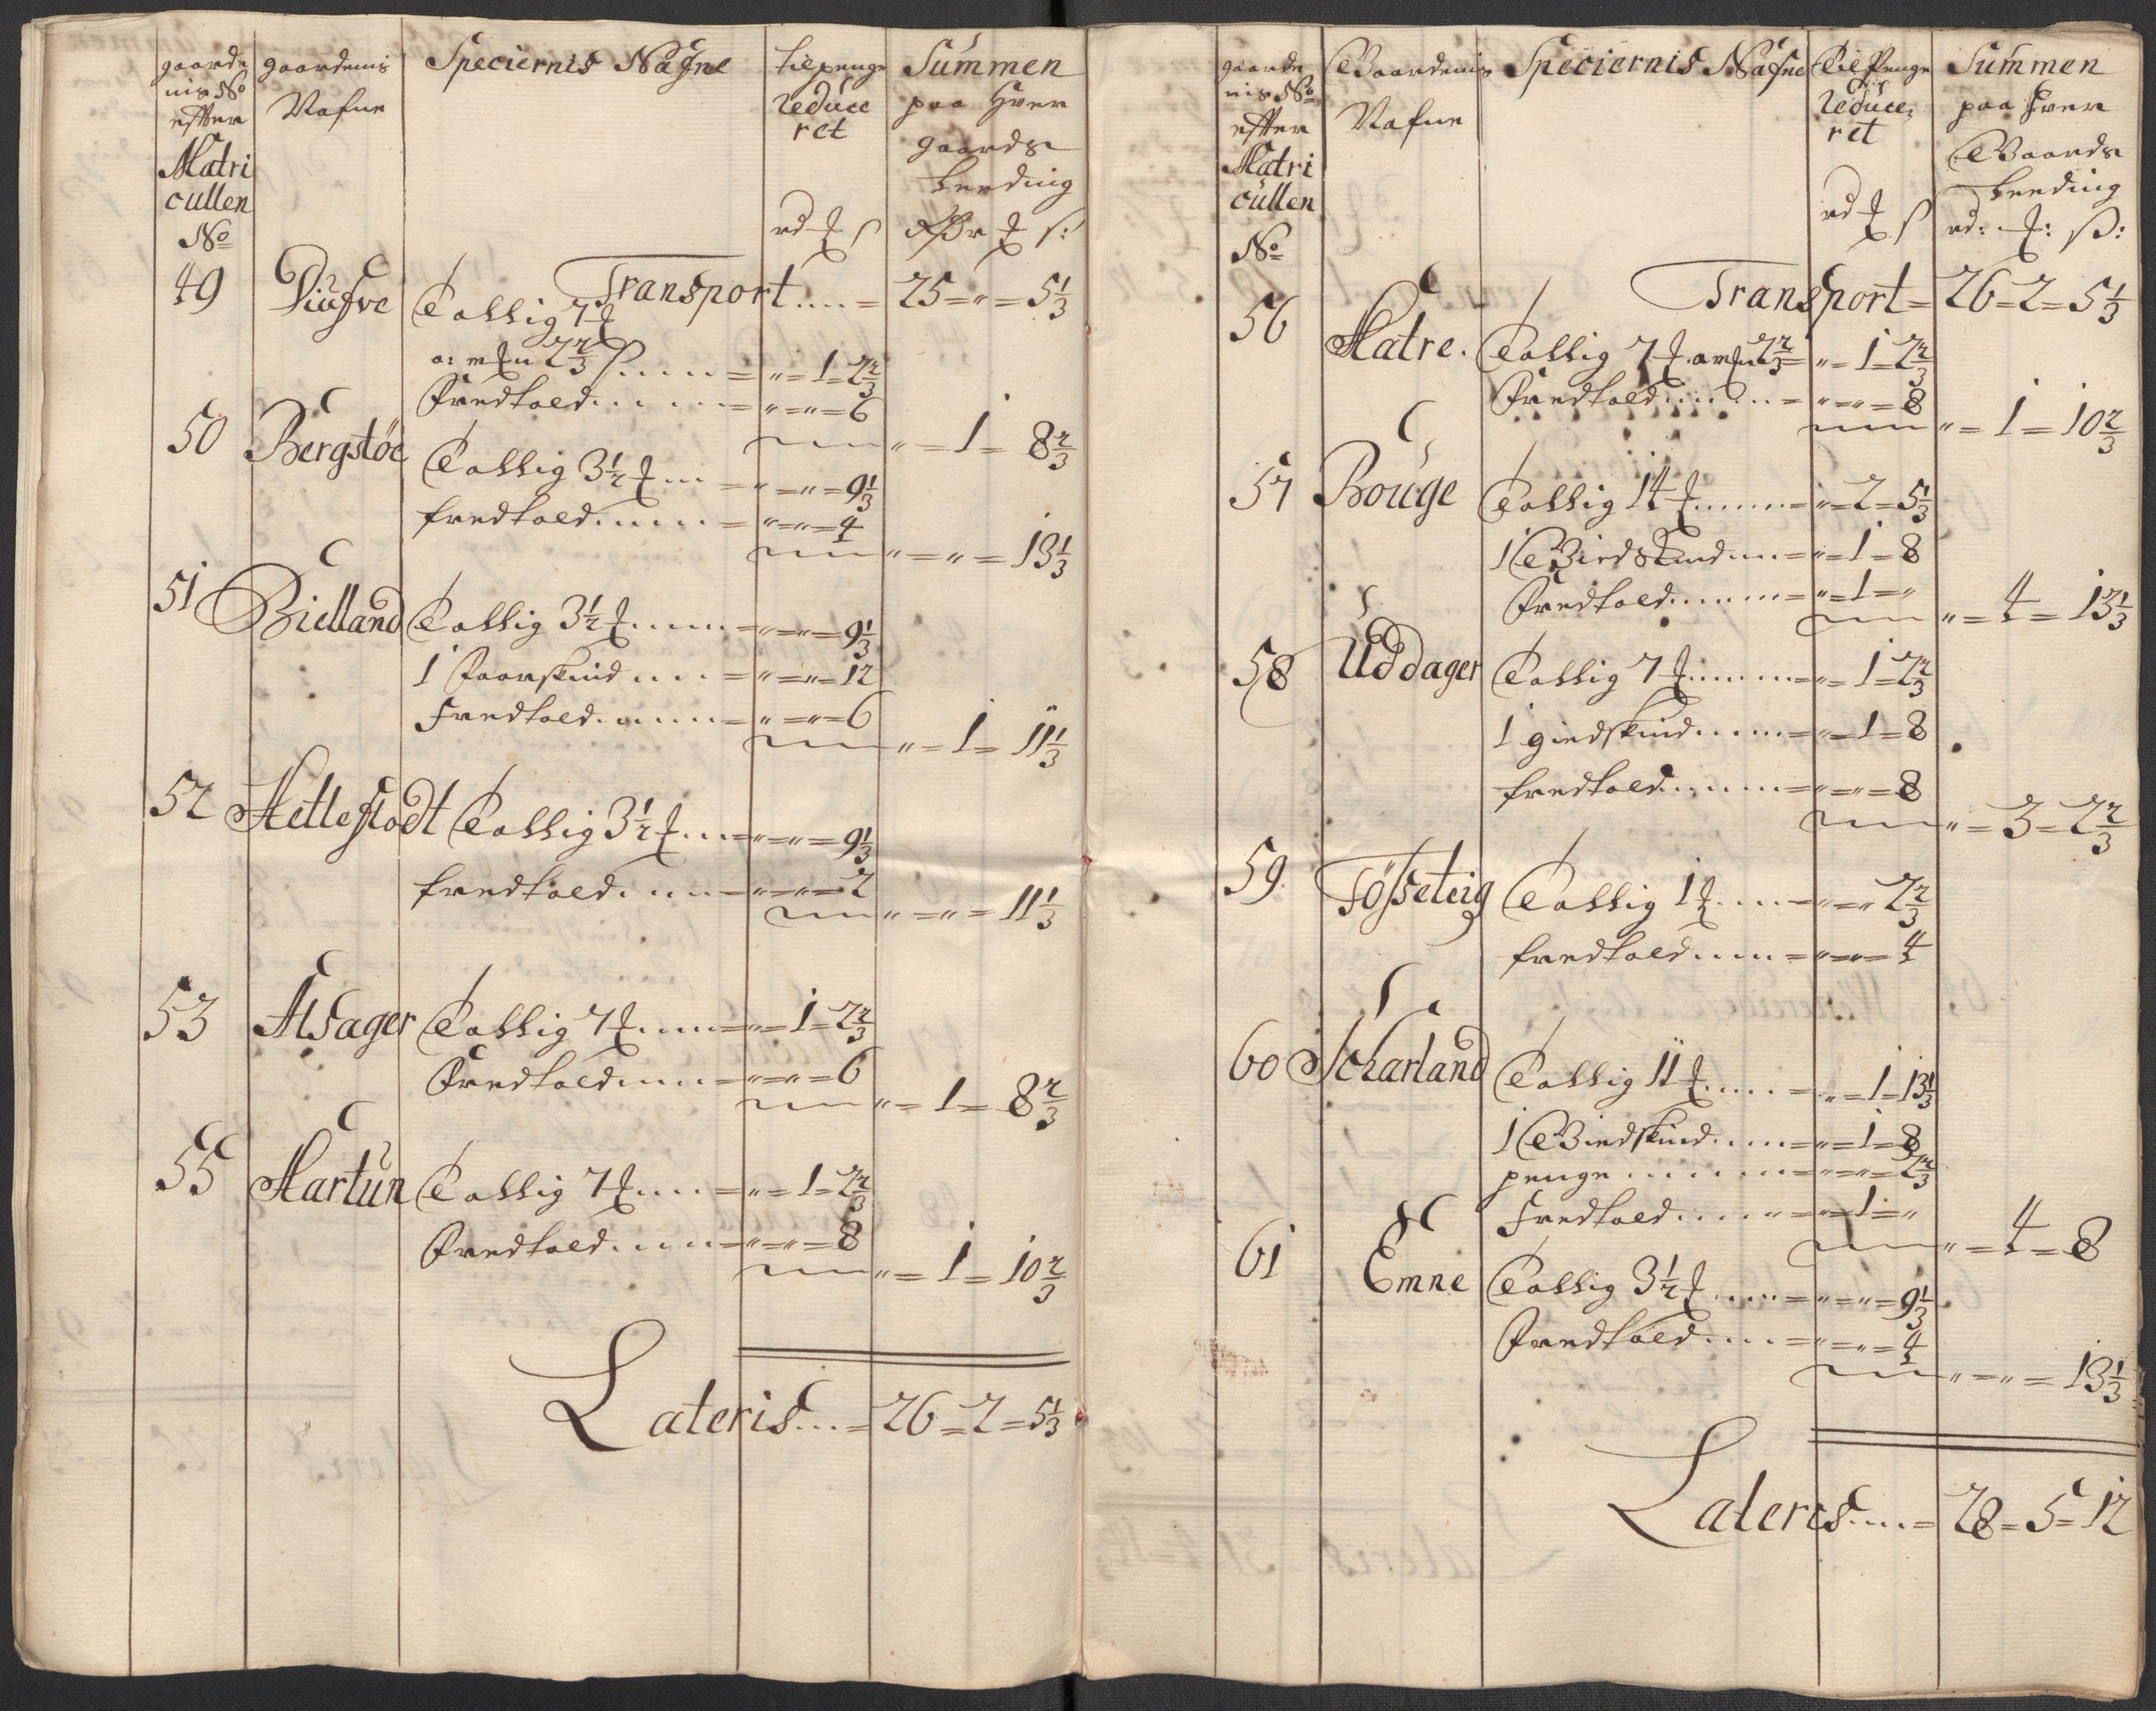 gaarde
nis No
effter
Matri
cullen
No
gaardenis
Nafne
Speciernis Nafne
til penge
reduce
ret
rd # s
Summen
paa Hver
gaards
Leeding
Rdr # s:
Transport.... = 25=„=5 1/3
49 Diufve Tallig 7 #
a: m#n 2 2/3 s..... = „=1=2 2/3
Fredtold...... = „=„=6
„=1=8 2/3
50 Bergstöe Tallig 3 1/2 #... = „=„=9 1/3
fredtold...... = „=„=4
„=„=13 1/3
51 Bielland Tallig 3 1/2 #..... = „=„=9 1/3
1 Faarskind.... = „=„=12
Fredtold...... = „=„=6
„=1=11 1/3
52 Hetlestödt Tallig 3 1/2 #... = „=„=9 1/3
fredtold..... = „=„=2
„=„=11 1/3
53 Alsager Tallig 7 #..... = „=1=2 2/3
Fredtold..... = „=„=6
„=1=8 2/3
55 Hartun Tallig 7 #.... = „=1=2 2/3
Fredtold..... = „=„=8
„=1=10 2/3
Lateris.... = 26=2=5 1/3
gaarde
nis No
effter
Matri
cullen
No
Gaardenis
Nafne
Speciernis Nafne
Til Penge
reduce:
ret
rd # s
Summen
paa Hver
Gaards
Leeding
rd: #: s:
Transport = 26=2=5 1/3
56 Matre. Tallig 7 # a m#n 2 2/3 = „=1=2 2/3
Fredtold...... = „=„=8
„=1=10 2/3
57 Bouge Tallig 14 #...... = „=2=5 1/3
1 Giedskind.... = „=1=8
Fredtold...... = „=1=„
„=4=13 1/3
58 Uddager Tallig 7 #...... = „=1=2 2/3
1 giedskind..... = „=1=8
fredtold...... = „=„=8
„=3=2 2/3
59 Fösseteig Tallig 1 #.... = „=„ 2 2/3
fredtold.... = „=„=4
60 Scharland Tallig 11 #.... = „=1=13 1/3
1 Giedskind.... = „=1=8
penge....... = „=„=2 2/3
Fredtold..... = „=1=„
„=4=8
61 Emne Tallig 3 1/2 #.... = „=„=9 1/3
Fredtold.... = „=„=4
„=„=13 1/3
Lateris.... = 28=5=12